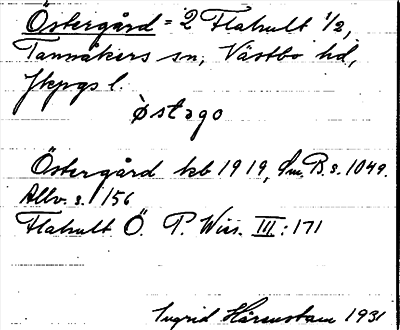 Östergård = 2 Flahult 1/2,
Tannåkers sn, Västbo hd,
Jkpgs l.
östəgo
Östergård kb 1919, Sm. B. s. 1049.
Allv. s. 156
Flahult Ö. P. Wies. III: 171
Ingrid Härenstam 1931